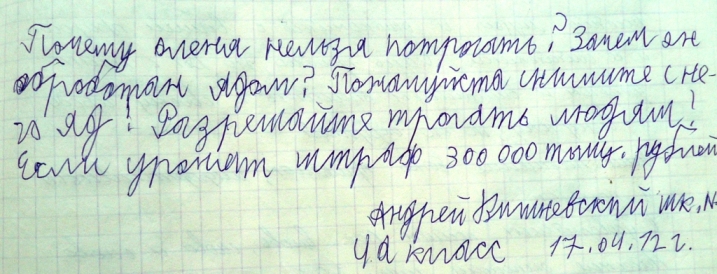 Почему оленя нельзя потрогать? Зачем он
обработан ядом? Пожалуйста снимите с не-
го яд! Разрешайте трогать людям!
Если уронят штраф 300 000 тыщ. рублей
Андрей Вишневский шк. №
4а класс 17.04.12 г.